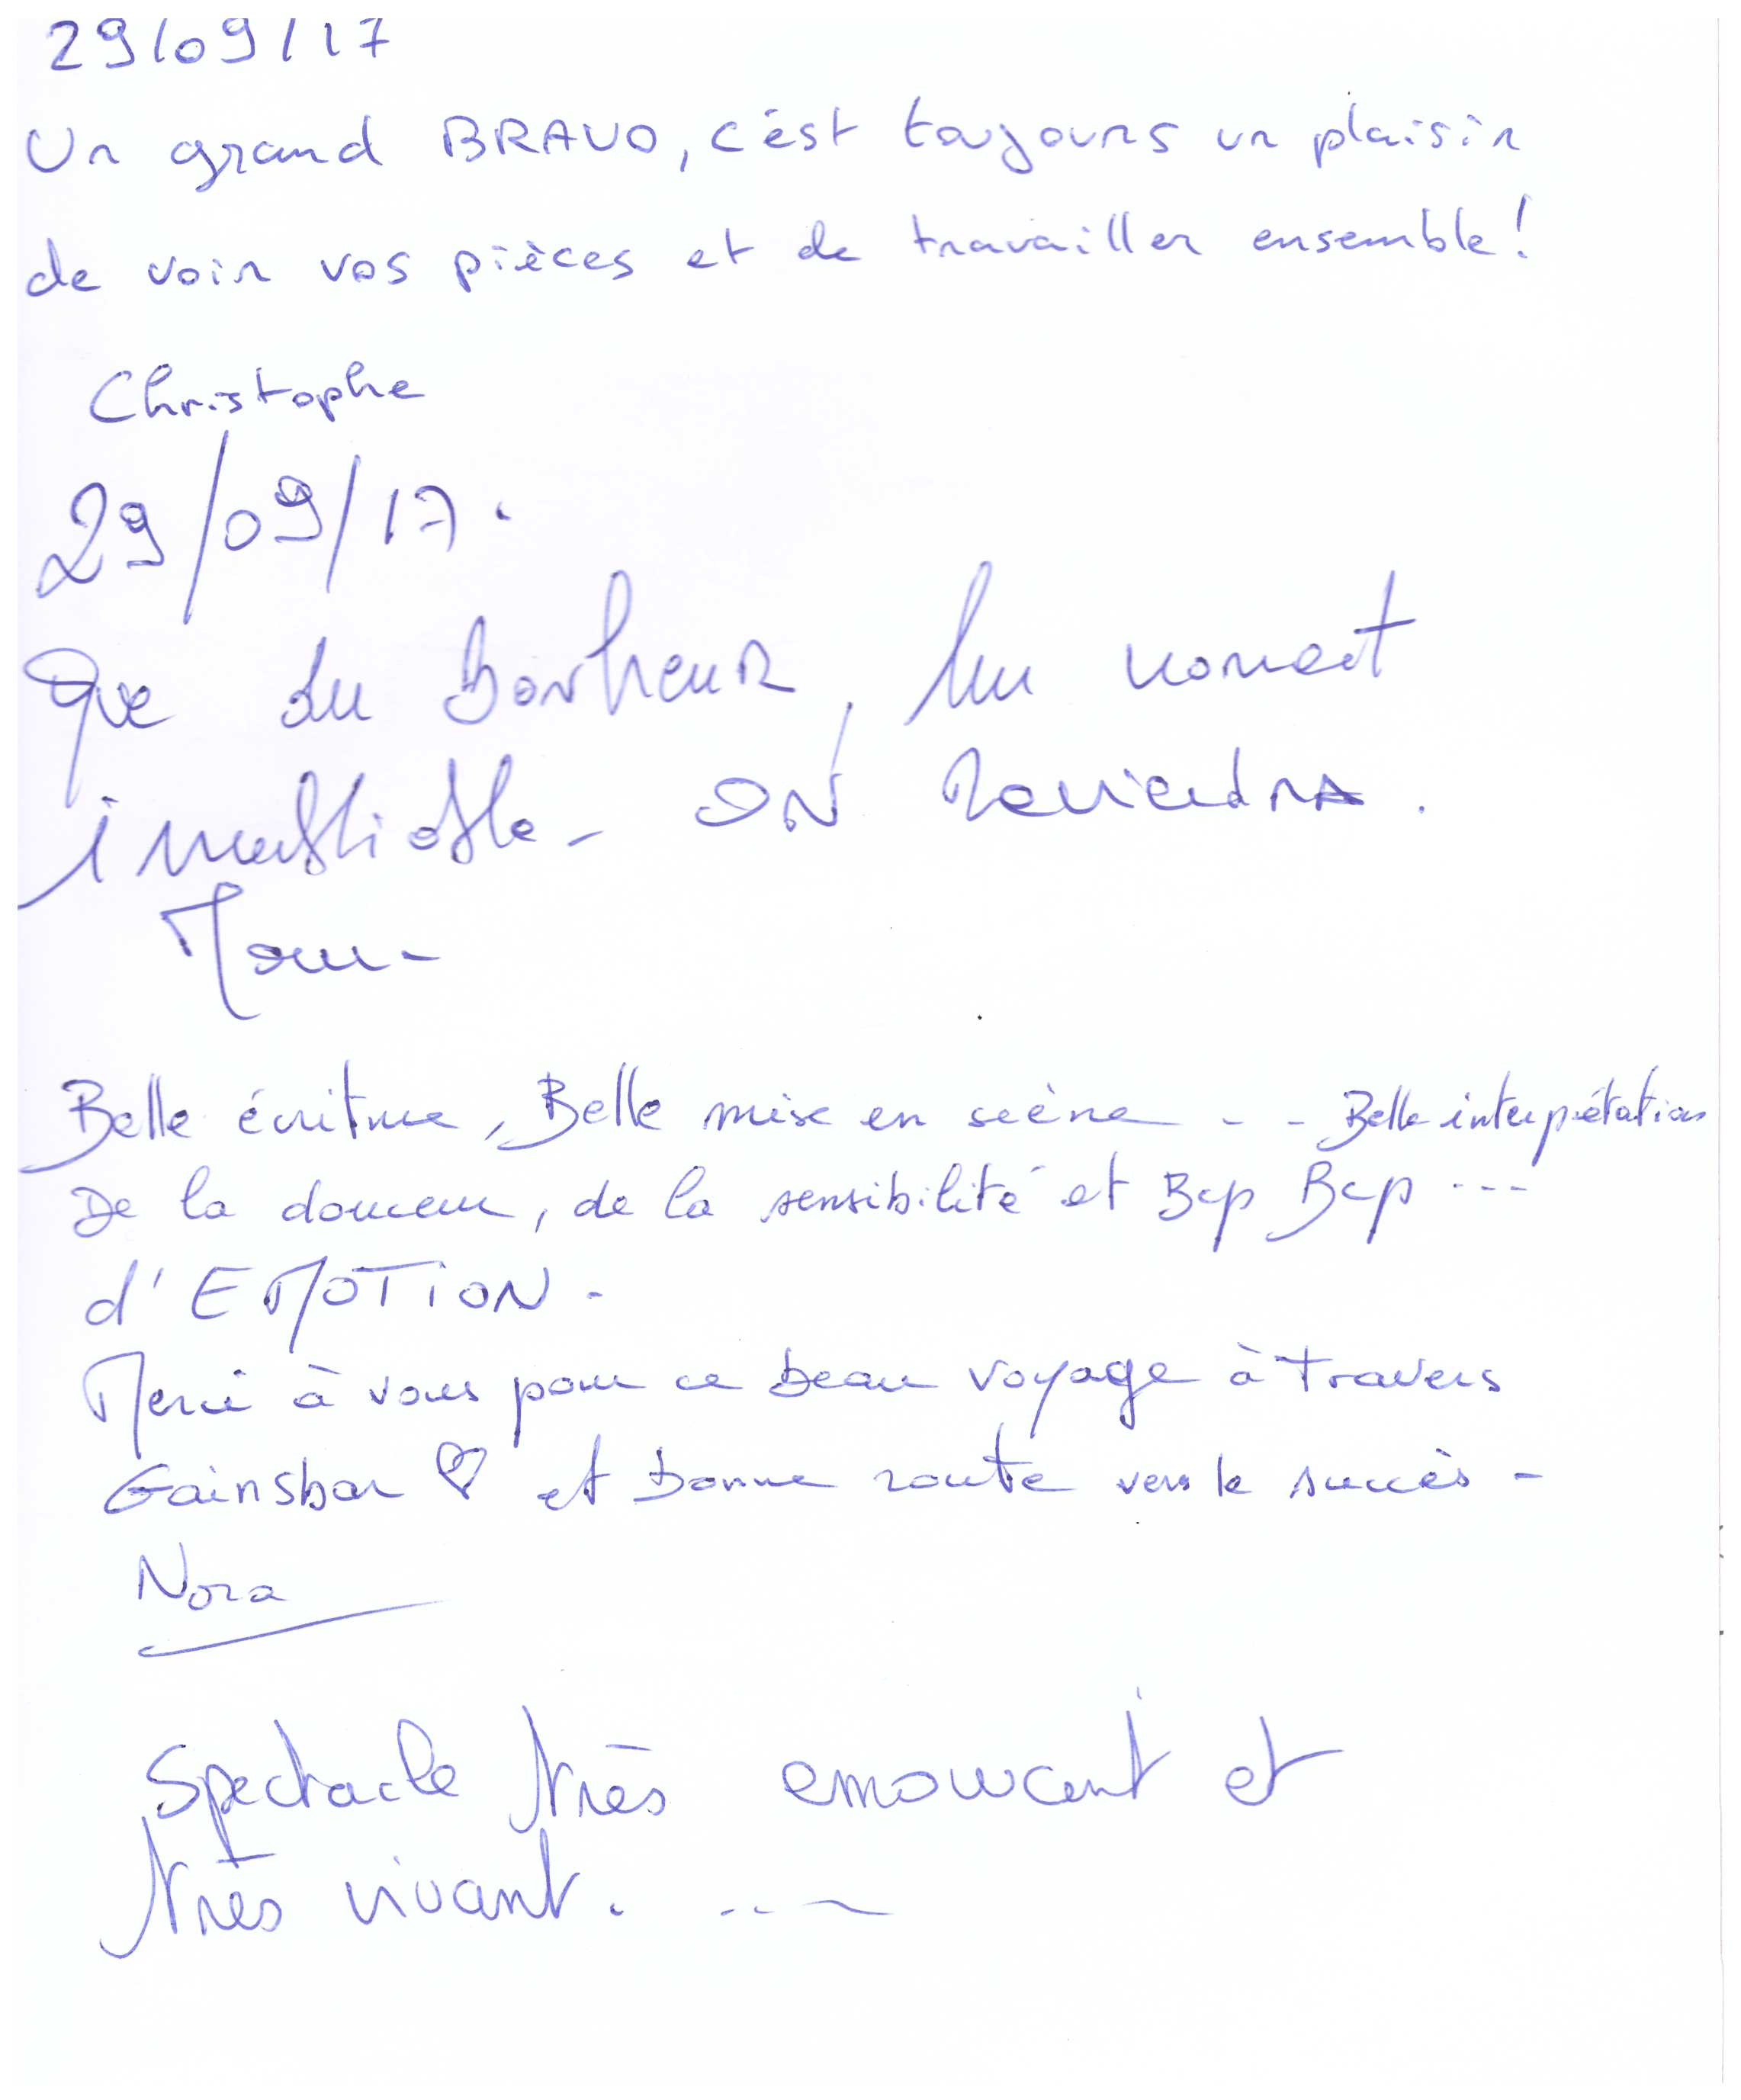 29/09/17
Un grand BRAVO, c'est toujours un plaisir
de voir vos pièces et de travailler ensemble!
Christophe
29/09/17.
Que du Bonheur, Un moment
inoubliable - ON Reviendra.
Belle écriture, Belle mise en scène - - Belle interprétation
De la douceur, de la sensibilité et Bcp Bcp ---
d'EMOTION -
Merci à vous pour ce beau voyage à Travers
Gainsbar ♡ et bonne route vers le succès -
Nora
Spectacle très emouvant et
très vivant. ...